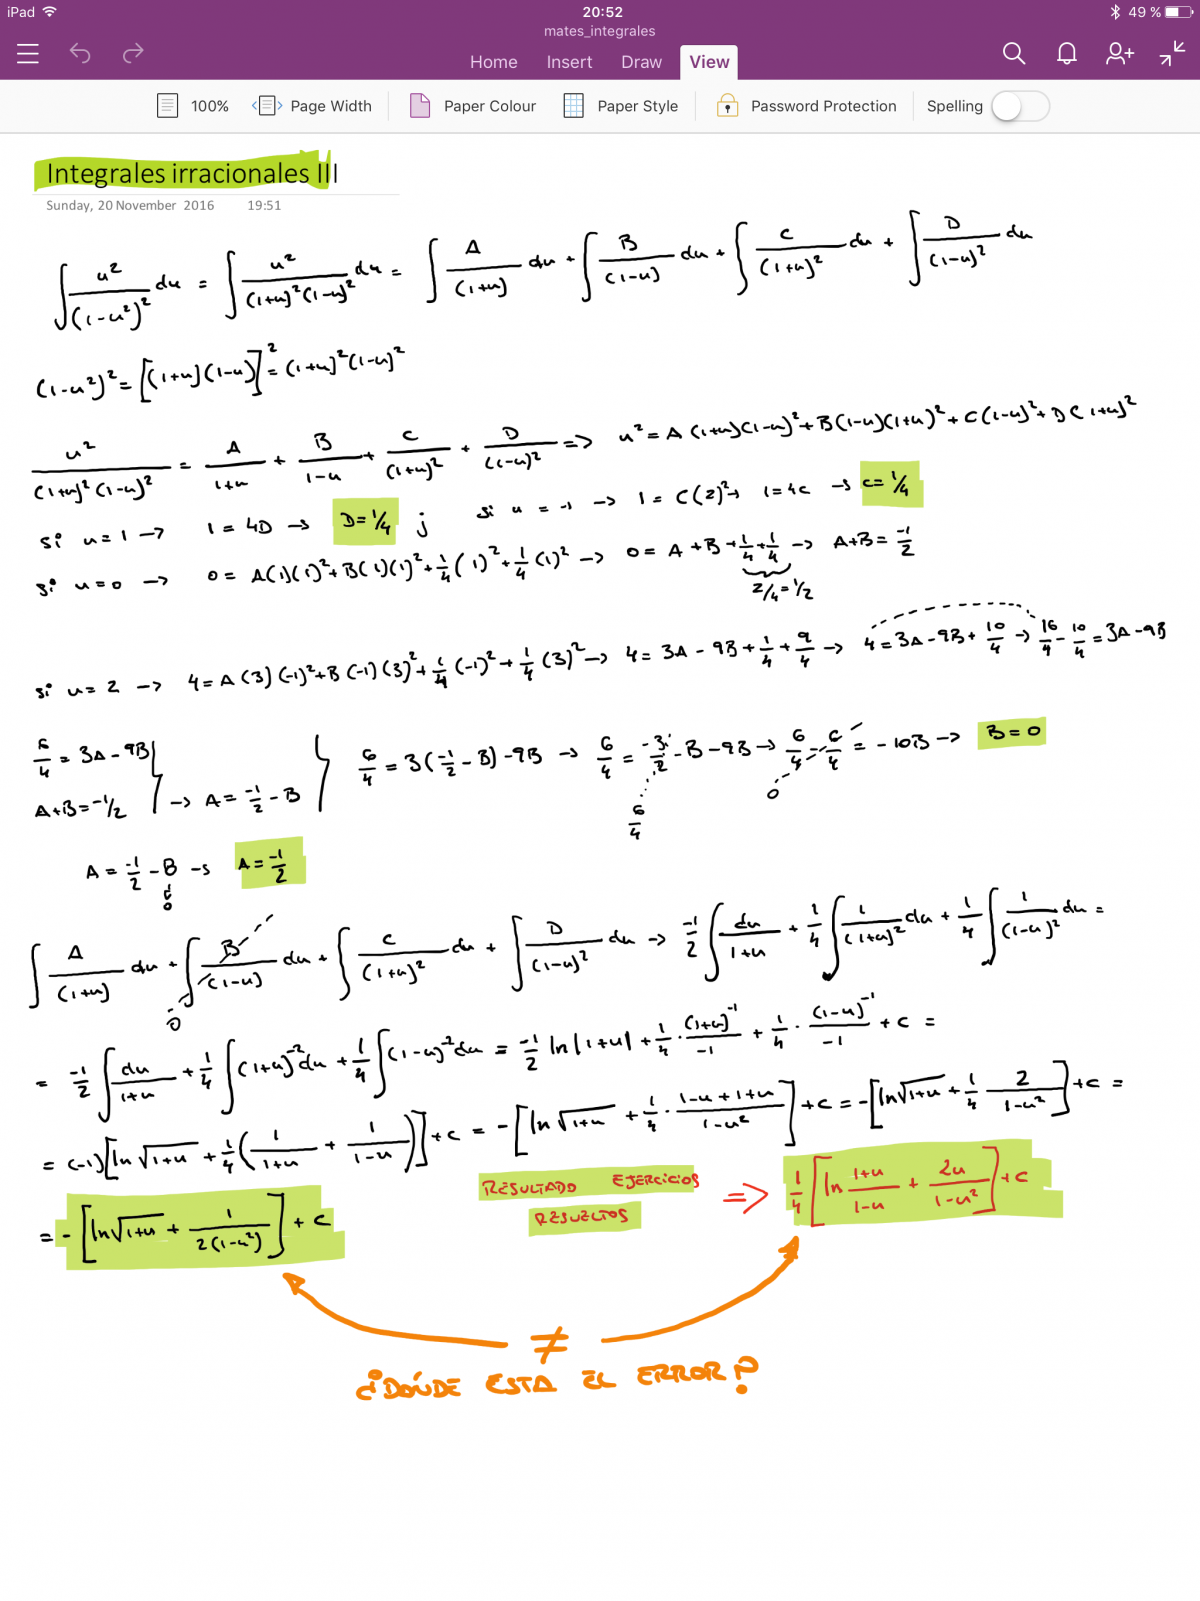 iPad 20:52 49 %
mates_integrales
Home Insert Draw View
100% Page Width Paper Colour Paper Style Password Protection Spelling
Integrales irracionales III
Sunday, 20 November 2016 19:51
∫ u²/(1-u²)² du = ∫ u²/((1+u)²(1-u)²) du = ∫ A/(1+u) du + ∫ B/(1-u) du + ∫ C/(1+u)² du + ∫ D/(1-u)² du
(1-u²)² = [(1+u)(1-u)]² = (1+u)²(1-u)²
u²/((1+u)²(1-u)²) = A/(1+u) + B/(1-u) + C/(1+u)² + D/(1-u)² => u² = A(1+u)(1-u)² + B(1-u)(1+u)² + C(1-u)² + D(1+u)²
si u=1 → 1 = 4D → D=1/4 ; si u = -1 → 1 = C(2)² → 1=4C → C=1/4
si u=0 → 0 = A(1)(1)² + B(1)(1)² + 1/4(1)² + 1/4(1)² → 0 = A+B+1/4+1/4 → A+B = -1/2
2/4=1/2
si u=2 → 4=A(3)(-1)²+B(-1)(3)²+1/4(-1)²+1/4(3)² → 4= 3A-9B+1/4+9/4 → 4=3A-9B+10/4 → 16/4-10/4=3A-9B
6/4 = 3A-9B
A+B=-1/2 → A=-1/2-B
6/4 = 3(-1/2-B)-9B → 6/4 = -3/2-B-9B → 6/4-6/4 = -10B → B=0
6/4
0
A = -1/2 - B → A=-1/2
0
∫ A/(1+u) du + ∫ B/(1-u) du + ∫ C/(1+u)² du + ∫ D/(1-u)² du → -1/2 ∫ du/(1+u) + 1/4 ∫ 1/(1+u)² du + 1/4 ∫ 1/(1-u)² du =
0
= -1/2 ∫ du/(1+u) + 1/4 ∫ (1+u)⁻² du + 1/4 ∫ (1-u)⁻² du = -1/2 ln|1+u| + 1/4 · (1+u)⁻¹/-1 + 1/4 · (1-u)⁻¹/-1 + C =
= (-1)[ln √1+u + 1/4(1/(1+u) + 1/(1-u))] + C = -[ln √1+u + 1/4 · (1-u+1+u)/(1-u²)] + C = -[ln √1+u + 1/4 2/(1-u²)] + C =
= -[ln √1+u + 1/(2(1-u²))] + C
RESULTADO EJERCICIOS
RESUELTOS
=> 1/4 [ln (1+u)/(1-u) + 2u/(1-u²)] + C
≠
¿DÓNDE ESTA EL ERROR?